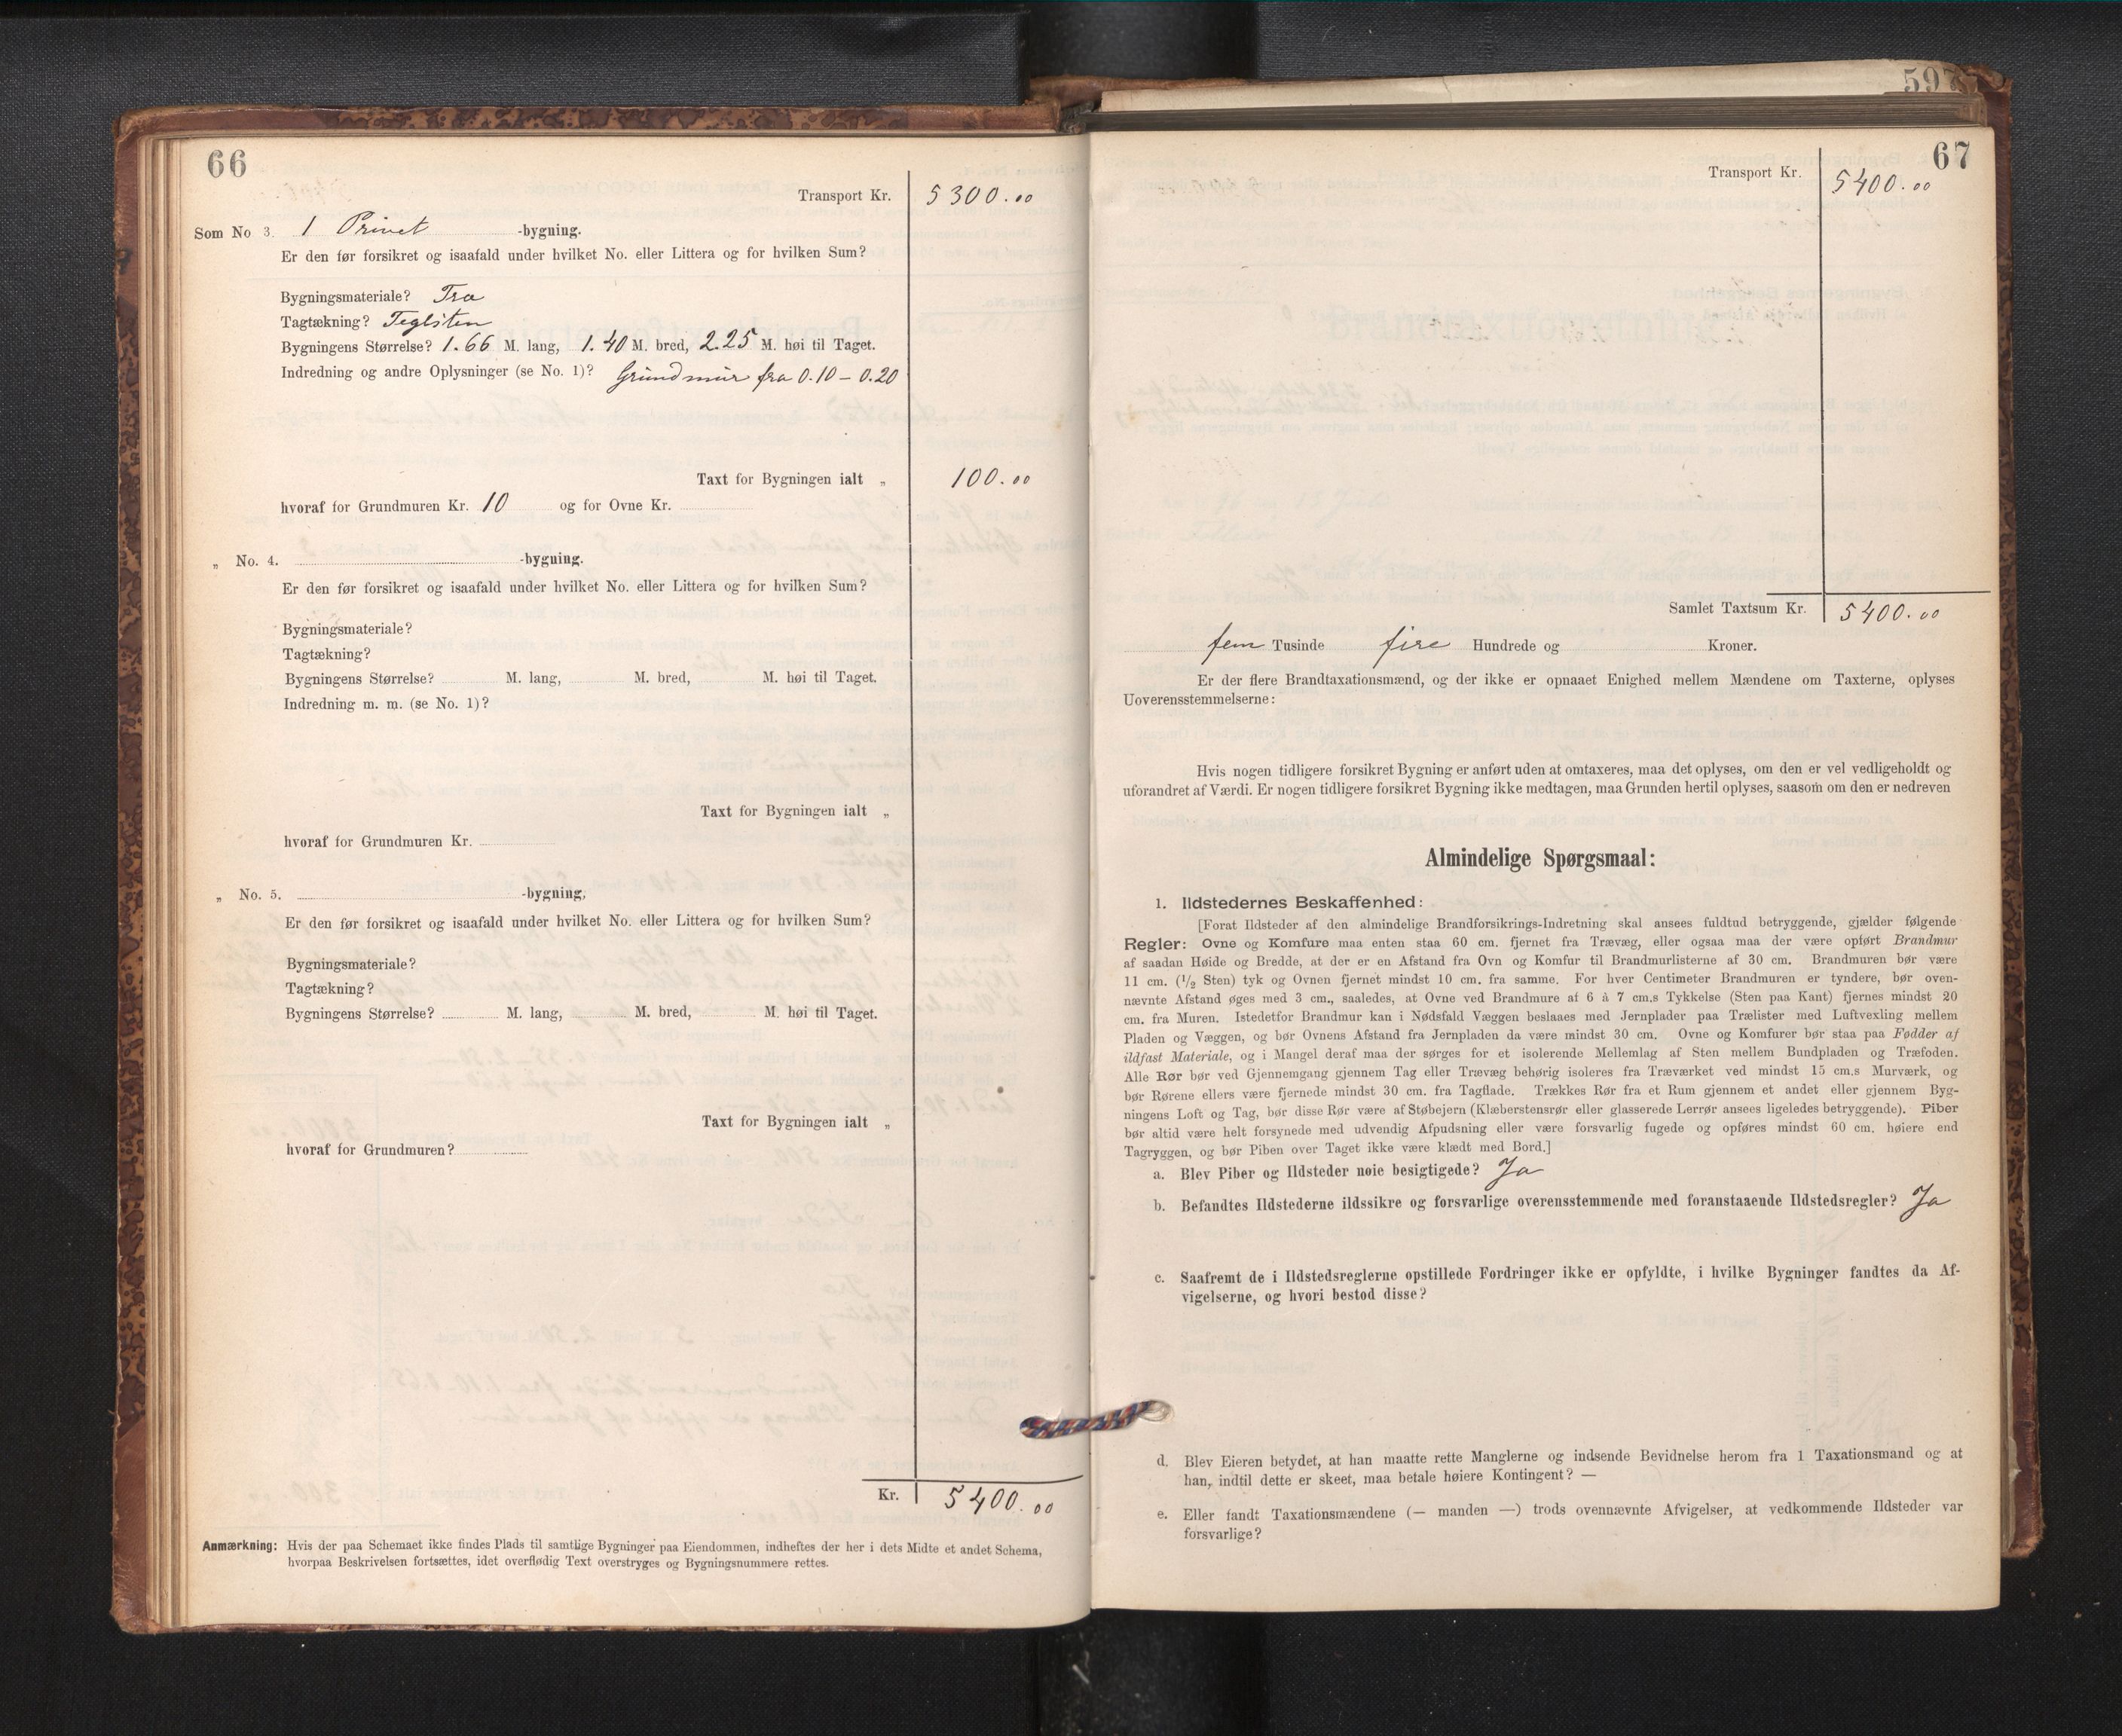 66
Transport Kr. 5300.00
Som No 3. 1 Privet -bygning.
Er den før forsikret og isaafald under hvilket No. eller Littera og for hvilken Sum?
Bygningsmateriale? Træ
Tagtækning? Teglsten
Bygningens Størrelse? 1.66 M. lang, 1.40 M. bred, 2.25 M. høi til Taget.
Indredning og andre Oplysninger (se No. 1)? Grundmur fra 0.10 – 0.20
Taxt for Bygningen ialt „ 100.00
hvoraf for Grundmuren Kr. 10 og for Ovne Kr.
„ No. 4. -bygning.
Er den før forsikret og isaafald under hvilket No. eller Littera og for hvilken Sum?
Bygningsmateriale?
Tagtækning?
Bygningens Størrelse? M. lang, M. bred, M. høi til Taget.
Indredning m. m. (se No. 1)?
Taxt for Bygningen ialt „
hvoraf for Grundmuren Kr.
„ No. 5. -bygning,
Er den før forsikret og isaafald under hvilket No. eller Littera og for hvilken Sum?
Bygningsmateriale?
Tagtækning?
Bygningens Størrelse? M. lang, M. bred, M. høi til Taget.
Taxt for Bygningen ialt „
hvoraf for Grundmuren?
Kr. 5400.00
Anmærkning: Hvis der paa Schemaet ikke findes Plads til samtlige Bygninger paa Eiendommen, indheftes der her i dets Midte et andet Schema,
hvorpaa Beskrivelsen fortsættes, idet overflødig Text overstryges og Bygningsnummere rettes.
597
67
Transport Kr. 5400.00
Samlet Taxtsum Kr. 5400.00
fem Tusinde fire Hundrede og Kroner.
Er der flere Brandtaxationsmænd, og der ikke er opnaaet Enighed mellem Mændene om Taxterne, oplyses
Uoverensstemmelserne:
Hvis nogen tidligere forsikret Bygning er anført uden at omtaxeres, maa det oplyses, om den er vel vedligeholdt og
uforandret af Værdi. Er nogen tidligere forsikret Bygning ikke medtagen, maa Grunden hertil oplyses, saasom om den er nedreven
Almindelige Spørgsmaal:
1. Ildstedernes Beskaffenhed:
[Forat Ildsteder af den almindelige Brandforsikrings-Indretning skal ansees fuldtud betryggende, gjælder følgende
Regler: Ovne og Komfure maa enten staa 60 cm. fjernet fra Trævæg, eller ogsaa maa der være opført Brandmur
af saadan Høide og Bredde, at der er en Afstand fra Ovn og Komfur til Brandmurlisterne af 30 cm. Brandmuren bør være
11 cm. (1/2 Sten) tyk og Ovnen fjernet mindst 10 cm. fra samme. For hver Centimeter Brandmuren er tyndere, bør oven-
nævnte Afstand øges med 3 cm., saaledes, at Ovne ved Brandmure af 6 à 7 cm.s Tykkelse (Sten paa Kant) fjernes mindst 20
cm. fra Muren. Istedetfor Brandmur kan i Nødsfald Væggen beslaaes med Jernplader paa Trælister med Luftvexling mellem
Pladen og Væggen, og bør Ovnens Afstand fra Jernpladen da være mindst 30 cm. Ovne og Komfurer bør staa paa Fødder af
ildfast Materiale, og i Mangel deraf maa der sørges for et isolerende Mellemlag af Sten mellem Bundpladen og Træfoden.
Alle Rør bør ved Gjennemgang gjennem Tag eller Trævæg behørig isoleres fra Træverket ved mindst 15 cm.s Murværk, og
bør Rørene ellers være fjernede mindst 30 cm. fra Tagflade. Trækkes Rør fra et Rum gjennem et andet eller gjennem Byg-
ningens Loft og Tag, bør disse Rør være af Støbejern (Klæberstensrør eller glasserede Lerrør ansees ligeledes betryggende). Piber
bør altid være helt forsynede med udvendig Afpudsning eller være forsvarlig fugede og opføres mindst 60 cm. høiere end
Tagryggen, og bør Piben over Taget ikke være klædt med Bord.]
a. Blev Piber og Ildsteder nøie besigtigede? Ja
b. Befandtes Ildstederne ildssikre og forsvarlige overensstemmende med foranstaaende Ildstedsregler? Ja
c. Saafremt de i Ildstedsreglerne opstillede Fordringer ikke er opfyldte, i hvilke Bygninger fandtes da Af-
vigelserne, og hvori bestod disse?
d. Blev Eieren betydet, at han maatte rette Manglerne og indsende Bevidnelse herom fra 1 Taxationsmand og at
han, indtil dette er skeet, maa betale høiere Kontingent? —
e. Eller fandt Taxationsmændene (— manden —) trods ovennævnte Afvigelser, at vedkommende Ildsteder var
forsvarlige?